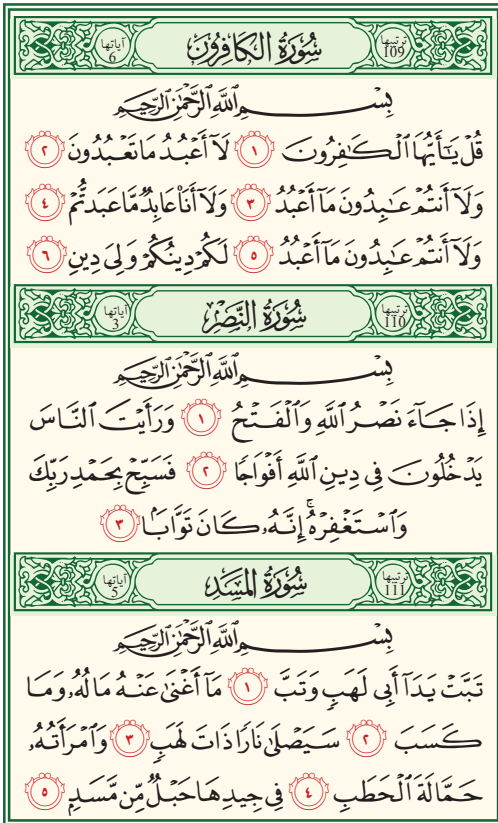 ترتيبها 109 سُورَةُ الكَافِرُونَ آياتها 6
بِسْمِ ٱللَّهِ ٱلرَّحْمَٰنِ ٱلرَّحِيمِ
قُلْ يَٰٓأَيُّهَا ٱلْكَٰفِرُونَ ١ لَآ أَعْبُدُ مَا تَعْبُدُونَ ٢
وَلَآ أَنتُمْ عَٰبِدُونَ مَآ أَعْبُدُ ٣ وَلَآ أَنَا۠ عَابِدٌ مَّا عَبَدتُّمْ ٤
وَلَآ أَنتُمْ عَٰبِدُونَ مَآ أَعْبُدُ ٥ لَكُمْ دِينُكُمْ وَلِىَ دِينِ ٦
ترتيبها 110 سُورَةُ النَّصْرِ آياتها 3
بِسْمِ ٱللَّهِ ٱلرَّحْمَٰنِ ٱلرَّحِيمِ
إِذَا جَآءَ نَصْرُ ٱللَّهِ وَٱلْفَتْحُ ١ وَرَأَيْتَ ٱلنَّاسَ
يَدْخُلُونَ فِى دِينِ ٱللَّهِ أَفْوَاجًا ٢ فَسَبِّحْ بِحَمْدِ رَبِّكَ
وَٱسْتَغْفِرْهُ ۚ إِنَّهُۥ كَانَ تَوَّابًۢا ٣
ترتيبها 111 سُورَةُ المَسَدِ آياتها 5
بِسْمِ ٱللَّهِ ٱلرَّحْمَٰنِ ٱلرَّحِيمِ
تَبَّتْ يَدَآ أَبِى لَهَبٍ وَتَبَّ ١ مَآ أَغْنَىٰ عَنْهُ مَالُهُۥ وَمَا
كَسَبَ ٢ سَيَصْلَىٰ نَارًا ذَاتَ لَهَبٍ ٣ وَٱمْرَأَتُهُۥ
حَمَّالَةَ ٱلْحَطَبِ ٤ فِى جِيدِهَا حَبْلٌ مِّن مَّسَدٍۭ ٥